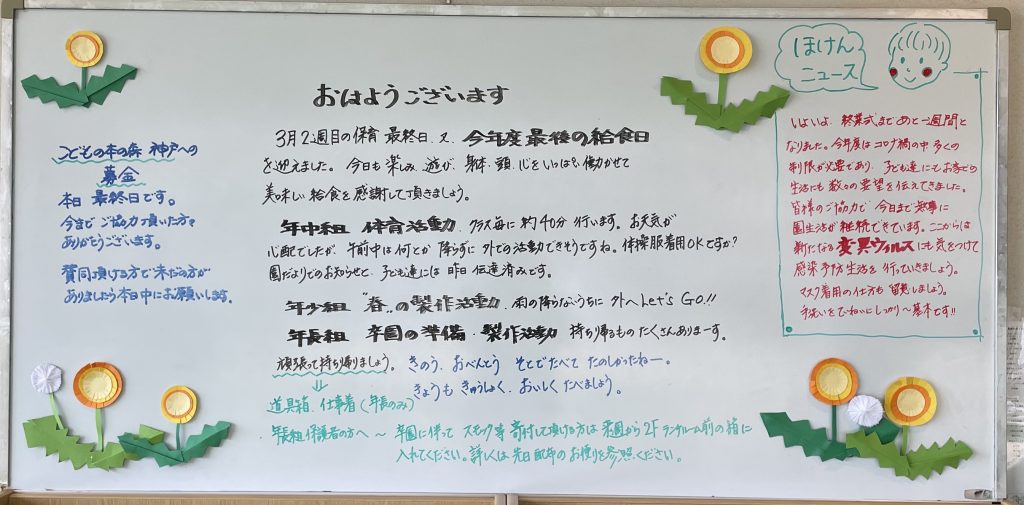 おはようございます
3月2週目の保育 最終日、又、今年度 最後の給食日
を迎えました。今日も楽しみ、遊び、身体・頭・心をいっぱい働かせて
美味しい給食を感謝して頂きましょう。
年中組 体育活動、クラス毎に約40分行います。お天気が
心配でしたが、午前中は何とか降らずに外での活動できそうですね。体操服着用OKですか?
園だよりでのお知らせと、子ども達には昨日伝達済みです。
年少組 "春"の製作活動、雨の降らないうちに外へLet's Go!!
年長組 卒園の準備・製作活動 持ち帰るものたくさんありまーす。
頑張って持ち帰りましょう。
きのう、おべんとう そとでたべて たのしかったねー。
きょうも きゅうしょく、おいしく たべましょう。
道具箱、仕事着(年長のみ)
年長組保護者の方へ〜 卒園に伴って スモック等 寄付して頂ける方は 来園から2F ランチルーム前の箱に
入れてください。詳しくは先日配布のお便りを参照ください。
こどもの本の森 神戸への
募金
本日 最終日です。
今まで ご協力頂いた方々
ありがとうございます。
賛同頂ける方で未だの方が
ありましたら本日中にお願いします。
ほけん
ニュース
いよいよ、終業式まであと一週間と
なりました。今年度はコロナ禍の中 多くの
制限が必要であり、子ども達にもお家での
生活にも数々の要望を伝えてきました。
皆様のご協力で 今日まで無事に
園生活が継続できています。ここからは
新たなる変異ウィルスにも気をつけて
感染予防生活を行っていきましょう。
マスク着用の仕方も留意しましょう。
手洗いをていねいにしっかり〜基本です!!